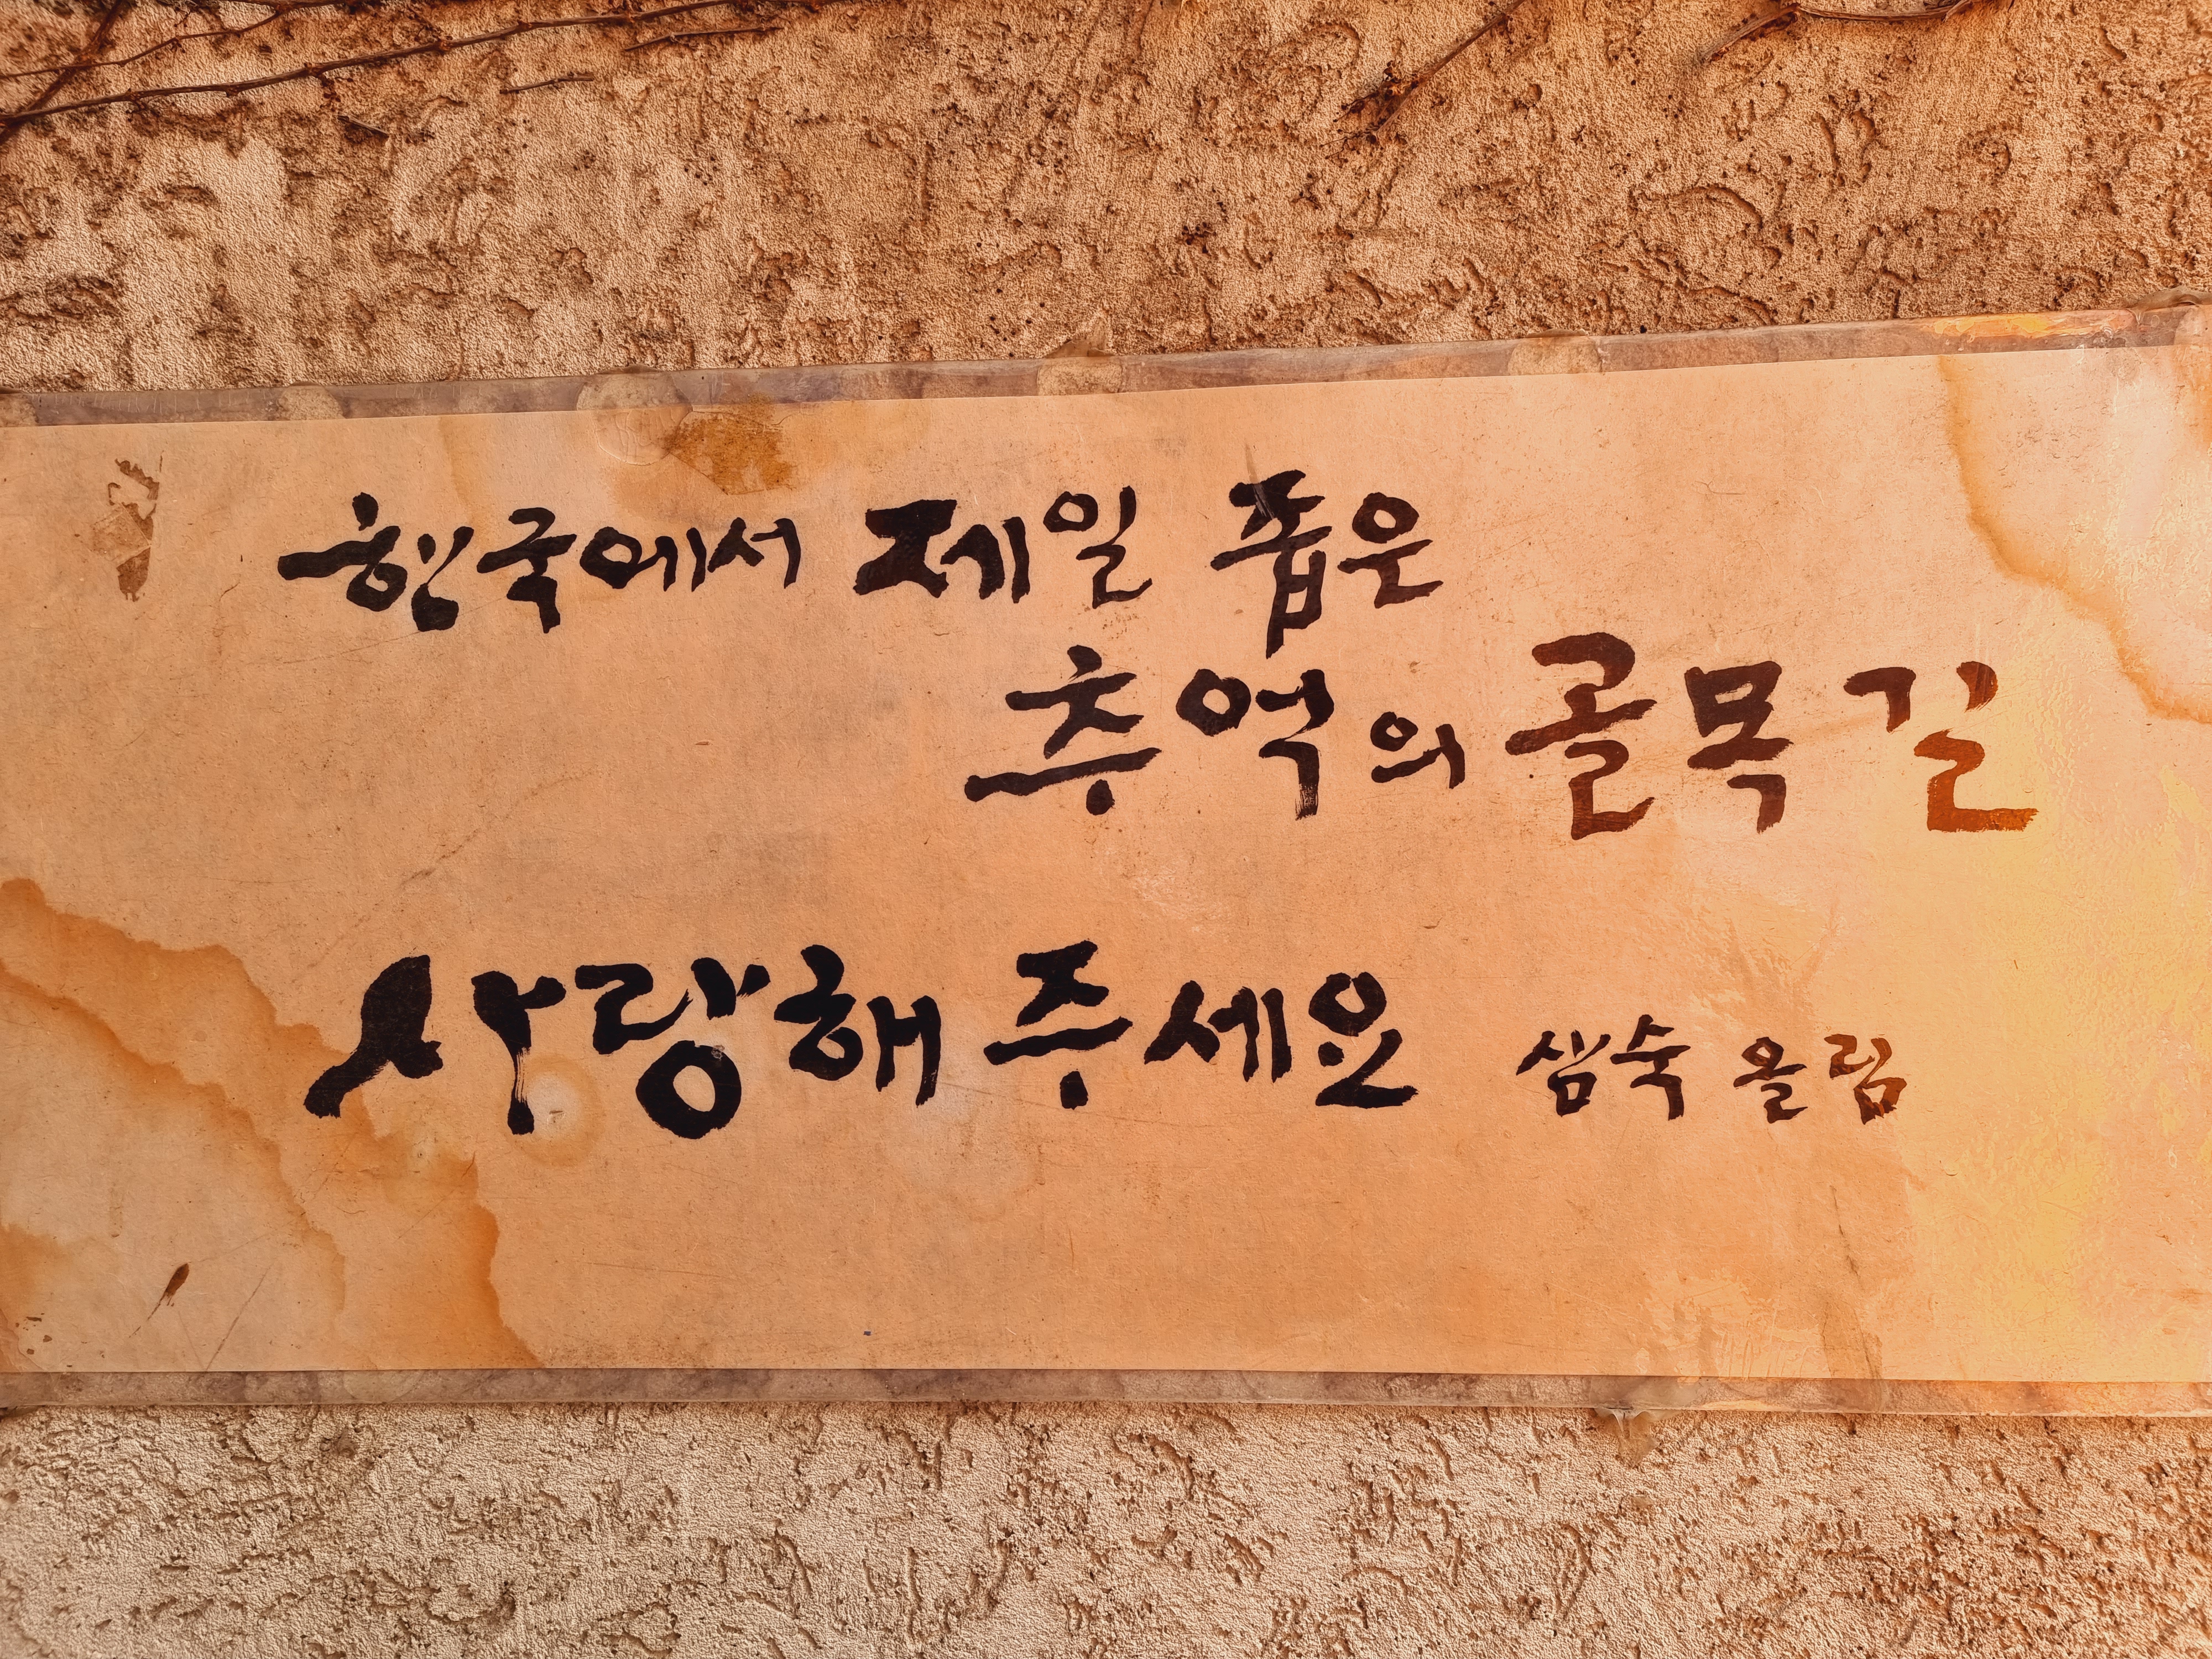 한국에서 제일 좁은
추억의 골목길
사랑해 주세요 샘숙 올림